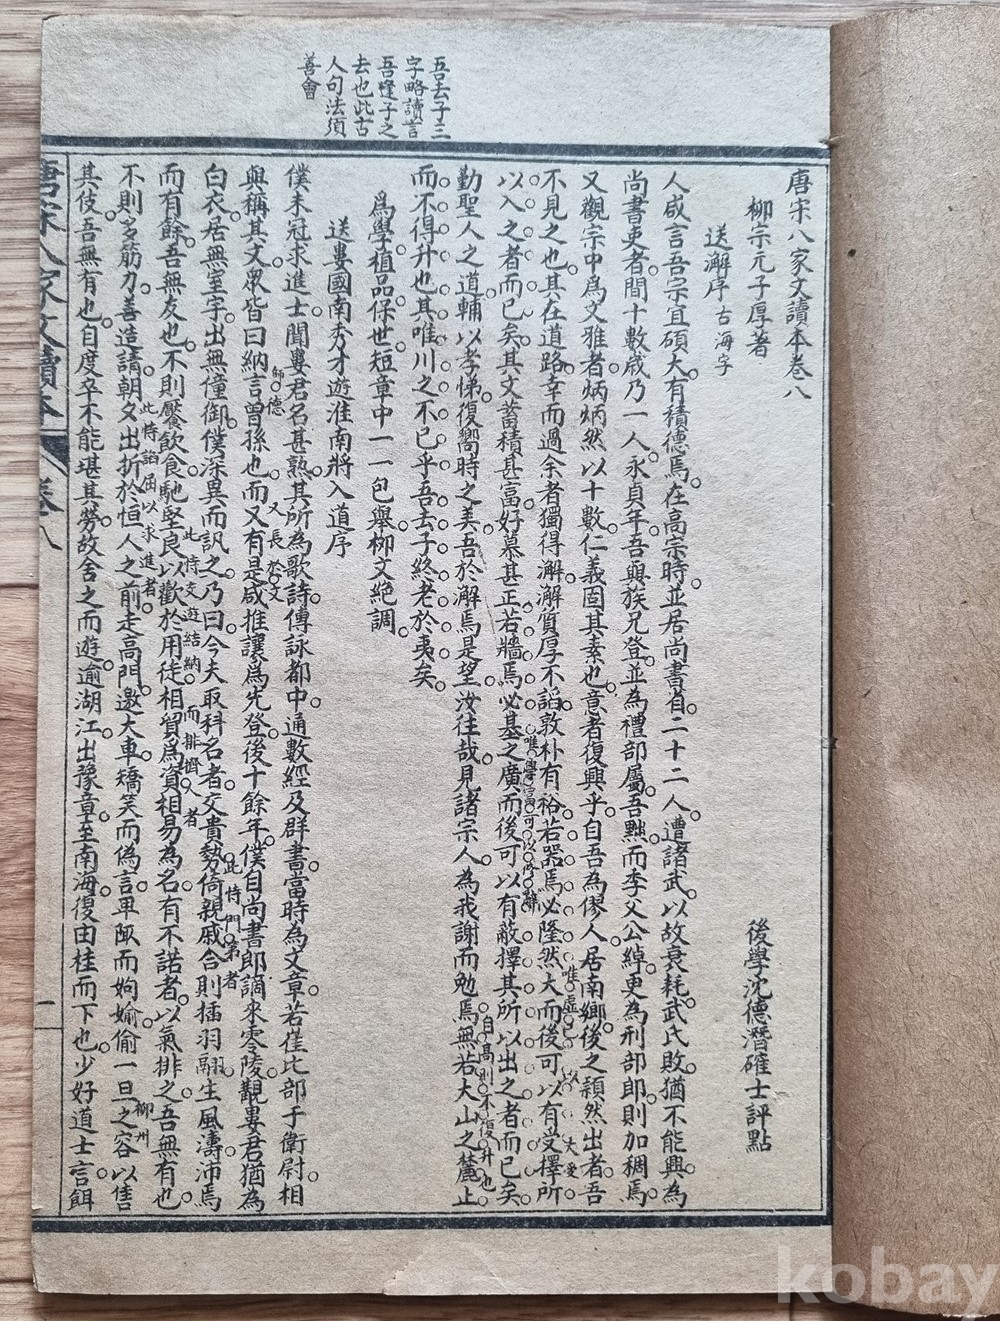 吾去子三
字略讀言
吾逢子之
去也此古
人句法須
善會
唐宋八家文讀本卷八
柳宗元子厚著
後學沈德潛確士評點
送澥序 古海字
人咸言吾宗宜碩大有積德焉在高宗時並居尚書省二十二人遭諸武以故衰耗武氏敗猶不能興為
尚書吏者間十數歲乃一人永貞年吾與族兄登並為禮部屬吾黜而季父公綽更為刑部郎則加稠焉
又觀宗中為文雅者炳炳然以十數仁義固其素也意者復興乎自吾為僇人居南鄉後之穎然出者吾
不見之也其在道路幸而過余者獨得澥澥質厚不諂敦朴有裕若器焉必隆然大而後可以有受擇所
唯虛己以大受
以入之者而已矣其文蓄積甚富好慕甚正若牆焉必基之廣而後可以有蔽擇其所以出之者而已矣
唯學富可以修辭
勤聖人之道輔以孝悌復嚮時之美吾於澥焉是望汝往哉見諸宗人為我謝而勉焉無若太山之麓止
自高則不復升也
而不得升也其唯川之不已乎吾去子終老於夷矣
為學植品保世短章中一一包舉柳文絕調
送婁圖南秀才遊淮南將入道序
僕未冠求進士聞婁君名甚熟其所為歌詩傳詠都中通數經及群書當時為文章若崔比部于衛尉相
與稱其文眾皆曰納言曾孫也而又有是咸推讓為先登後十餘年僕自尚書郎謫來零陵覯婁君猶為
師德
又長於文
白衣居無室宇出無僮御僕深異而訊之乃曰今夫取科名者交貴勢倚親戚合則插羽翮生風濤沛焉
此恃門第者
而有餘吾無友也不則饜飲食馳堅良以歡於用徒相貿為資相易為名有不諾者以氣排之吾無有也
此恃交遊結納而排擠人者
不則多筋力善造請朝夕出折於恒人之前走高門邀大車矯笑而偽言卑陬而姁媮偷一旦之容以售
此恃諂屈以求進者
其伎吾無有也自度卒不能堪其勞故舍之而遊逾湖江出豫章至南海復由桂而下也少好道士言餌
柳州
唐宋八家文讀本 卷八 一
kobay